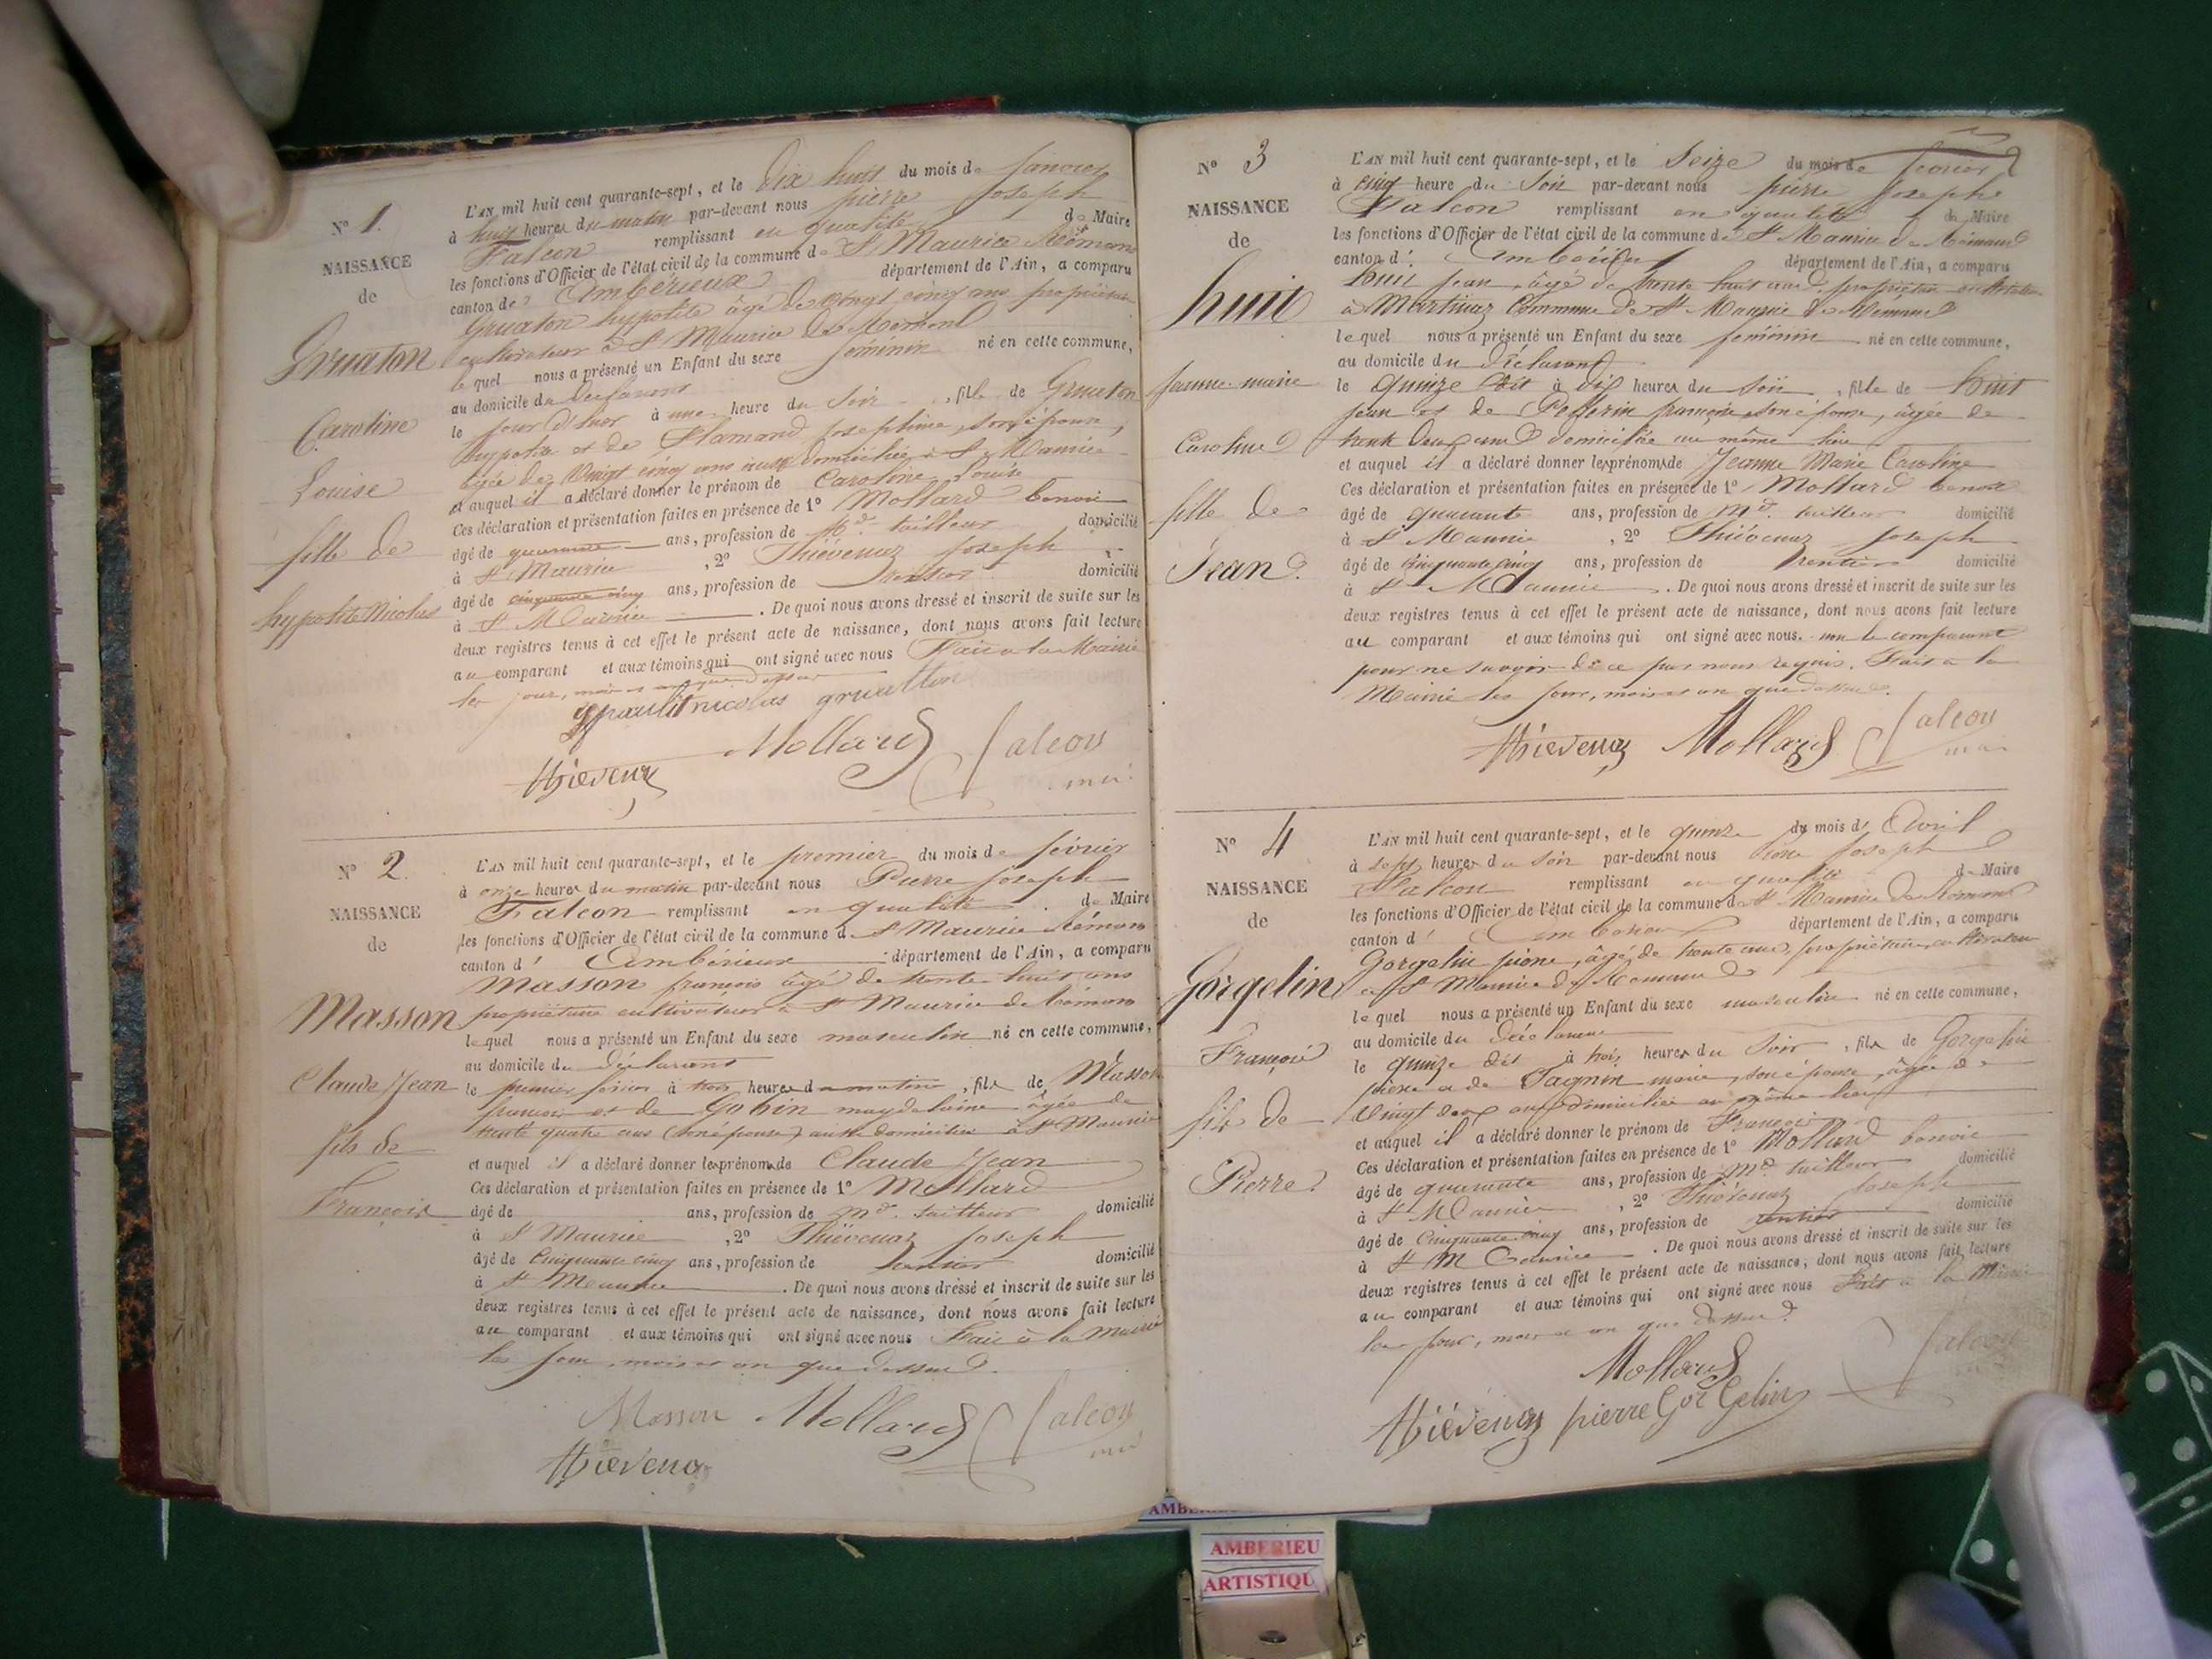 N° 1.
NAISSANCE
de
Gruaton
Caroline
Louise
fille de
hypolite Nicolas
L'AN mil huit cent quarante-sept, et le Dix huit du mois de Janvier
à huit heures du matin par-devant nous pierre Joseph
Falcon remplissant en qualité de Maire
les fonctions d'Officier de l'état civil de la commune de St Maurice Rémens
canton de Ambérieux département de l'Ain, a comparu
Gruaton hypolite âgé de vingt cinq ans propriétaire
cultivateur à St Maurice de Remens
lequel nous a présenté un Enfant du sexe féminin né en cette commune,
au domicile du déclarant
le jour d'hier à une heure du Soir, fille de Gruaton
hypolite et de Flamand Josephine, son épouse,
âgée de vingt cinq ans aussi domiciliée à St Maurice
et auquel il a déclaré donner le prénom de Caroline Louise
Ces déclaration et présentation faites en présence de 1° Mollard benoit
âgé de quarante ans, profession de Md tailleur domicilié
à St Maurice, 2° Thiévenaz Joseph
âgé de cinquante cinq ans, profession de rentier domicilié
à St Maurice. De quoi nous avons dressé et inscrit de suite sur les
deux registres tenus à cet effet le présent acte de naissance, dont nous avons fait lecture
au comparant et aux témoins qui ont signé avec nous Fait à la Mairie
les jour, mois et an que dessus
nicolas gruatton
Mollard Falcon
Thievenaz
N° 2.
NAISSANCE
de
Masson
Claude Jean
fils de
François
L'AN mil huit cent quarante-sept, et le premier du mois de février
à onze heures du matin par-devant nous Pierre Joseph
Falcon remplissant en qualité de Maire
les fonctions d'Officier de l'état civil de la commune de St Maurice Rémens
canton d' Ambérieux département de l'Ain, a comparu
Masson francois âgé de trente huit ans
propriétaire cultivateur à St Maurice de Rémens
lequel nous a présenté un Enfant du sexe masculin né en cette commune,
au domicile du déclarant
le premier février à trois heures du matin, fils de Masson
francois et de Gobin magdelaine âgée de
trente quatre ans (son épouse) aussi domiciliée à St Maurice
et auquel il a déclaré donner les prénoms de Claude Jean
Ces déclaration et présentation faites en présence de 1° Mollard
âgé de ans, profession de Md. tailleur domicilié
à St Maurice, 2° Thiévenaz Joseph
âgé de Cinquante cinq ans, profession de rentier domicilié
à St Maurice. De quoi nous avons dressé et inscrit de suite sur les
deux registres tenus à cet effet le présent acte de naissance, dont nous avons fait lecture
au comparant et aux témoins qui ont signé avec nous Fait à la Mairie
les jour, mois et an que dessus.
Masson Mollard Falcon
Thievenaz
N° 3
NAISSANCE
de
huit
Jeanne-marie
Caroline
fille de
Jean.
L'AN mil huit cent quarante-sept, et le Seize du mois de février
à cinq heure du Soir par-devant nous pierre Joseph
Falcon remplissant en qualité de Maire
les fonctions d'Officier de l'état civil de la commune de St Maurice de Rémens
canton d' Ambérieux département de l'Ain, a comparu
huit Jean, âgé de trente huit ans, propriétaire cultivateur
à Martinaz Commune de St Maurice de Rémens
lequel nous a présenté un Enfant du sexe féminin né en cette commune,
au domicile du Déclarant
le quinze Dit à Dix heures du Soir, fille de huit
Jean et de Pellerin françoise son épouse, âgée de
trente deux ans domiciliée au même lieu
et auquel il a déclaré donner les prénoms de Jeanne Marie Caroline
Ces déclaration et présentation faites en présence de 1° Mollard benoit
âgé de quarante ans, profession de Md. tailleur domicilié
à St Maurice, 2° Thiévenaz Joseph
âgé de Cinquante cinq ans, profession de rentier domicilié
à St Maurice. De quoi nous avons dressé et inscrit de suite sur les
deux registres tenus à cet effet le présent acte de naissance, dont nous avons fait lecture
au comparant et aux témoins qui ont signé avec nous. non le comparant
pour ne savoir de ce par nous requis. Fait à la
Mairie les jour, mois et an que dessus.
Thievenaz Mollard Falcon
N° 4
NAISSANCE
de
Gorgelin
François
fils de
Pierre.
L'AN mil huit cent quarante-sept, et le quinze du mois d' Avril
à sept heures du Soir par-devant nous Pierre Joseph
Falcon remplissant en qualité de Maire
les fonctions d'Officier de l'état civil de la commune de St Maurice de Rémens
canton d' Ambérieux département de l'Ain, a comparu
Gorgelin pierre, âgé de trente ans, propriétaire, cultivateur
à St Maurice de Rémens
lequel nous a présenté un Enfant du sexe masculin né en cette commune,
au domicile du Déclarant
le quinze Dit à trois heures du Soir, fils de Gorgelin
pierre et de Tagnin marie, son épouse, âgée de
Vingt deux ans domiciliée au même lieu
et auquel il a déclaré donner le prénom de François
Ces déclaration et présentation faites en présence de 1° Mollard benoit
âgé de quarante ans, profession de Md tailleur domicilié
à St Maurice, 2° Thiévenaz Joseph
âgé de Cinquante cinq ans, profession de rentier domicilié
à St Maurice. De quoi nous avons dressé et inscrit de suite sur les
deux registres tenus à cet effet le présent acte de naissance, dont nous avons fait lecture
au comparant et aux témoins qui ont signé avec nous Fait à la Mairie
les jour, mois et an que dessus.
Mollard Falcon
Thiévenaz pierre Gor Gelin
AMBERIEU
ARTISTIQU